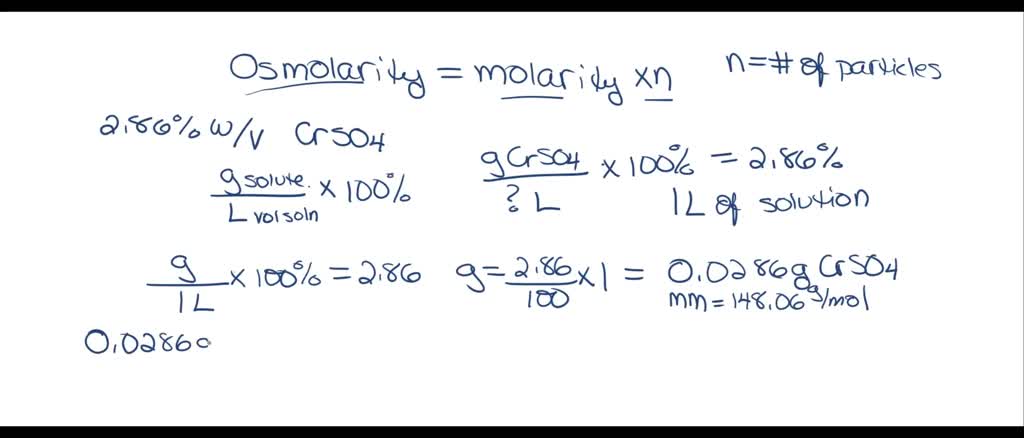 Osmolarity = molarity × n   n = # of particles
2.86% w/v CrSO4
g solute / L vol soln × 100%   g CrSO4 / ? L × 100% = 2.86%
1L of solution
g / 1L × 100% = 2.86   g = 2.86 / 100 × 1 = 0.0286 g CrSO4
mm = 148.06 g/mol
0.0286